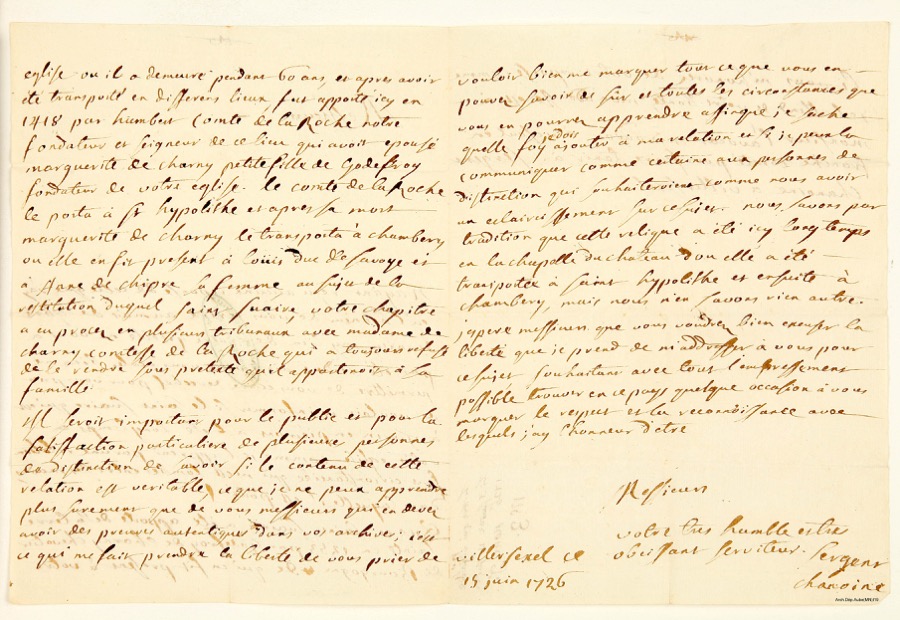 eglise ou il a demeuré pendant 60 ans, et apres avoir
été transporté en differens lieux, fut apporté icy en
1418 par humbert Comte de la Roche notre
fondateur et seigneur de ce lieu qui avoit epousé
marguerite de charny petite fille de Godefroy
fondateur de votre eglise. le comte de la Roche
le porta à st hypolithe et apres sa mort
marguerite de charny le transporta à chambery
ou elle en fit present à loüis duc de savoye et
à Anne de chipre sa femme, au sujet de la
restitution duquel saint suaire votre chapitre
a eu procez en plusieurs tribunaux avec madame de
charny comtesse de la Roche qui a toujours refusé
de le rendre sous pretexte quil appartenoit à sa
famille.
Il seroit important pour le publie et pour la
satisfaction particuliere de plusieurs personnes
de distinction de savoir si le contenu de cette
relation est veritable, ce que je ne peux apprendre
plus surement que de vous messieurs qui en devez
avoir des preuves autentiques dans vos archives; c'est
ce qui me fait prendre la liberté de vous prier de
vouloir bien me marquer tout ce que vous en
pouvez savoir de sûr et toutes les circonstances que
vous en pourrez apprendre affinque je sache
quelle foy je dois ajouter à ma relation et si je peux la
communiquer comme certaine aux personnes de
distinction qui souhaiteroient comme nous avoir
un eclaircissement sur ce sujet. nous savons par
tradition que cette relique a été icy longtemps
en la chapelle du chateau dou elle a été
transportée à saint hypolithe et ensuite à
chambery, mais nous n'en savons rien autre.
j'espere messieurs que vous voudrez bien excuser la
liberté que je prend de m'addresser à vous pour
ce sujet souhaitant avec tout l'empressement
possible trouver en ce pays quelque occasion à vous
marquer le respect et la reconnoissance avec
lesquels j'ay l'honneur d'etre
Messieurs
votre tres humble et tres
obeissant serviteur. Sergent
chanoine
villersexel ce
15 juin 1726